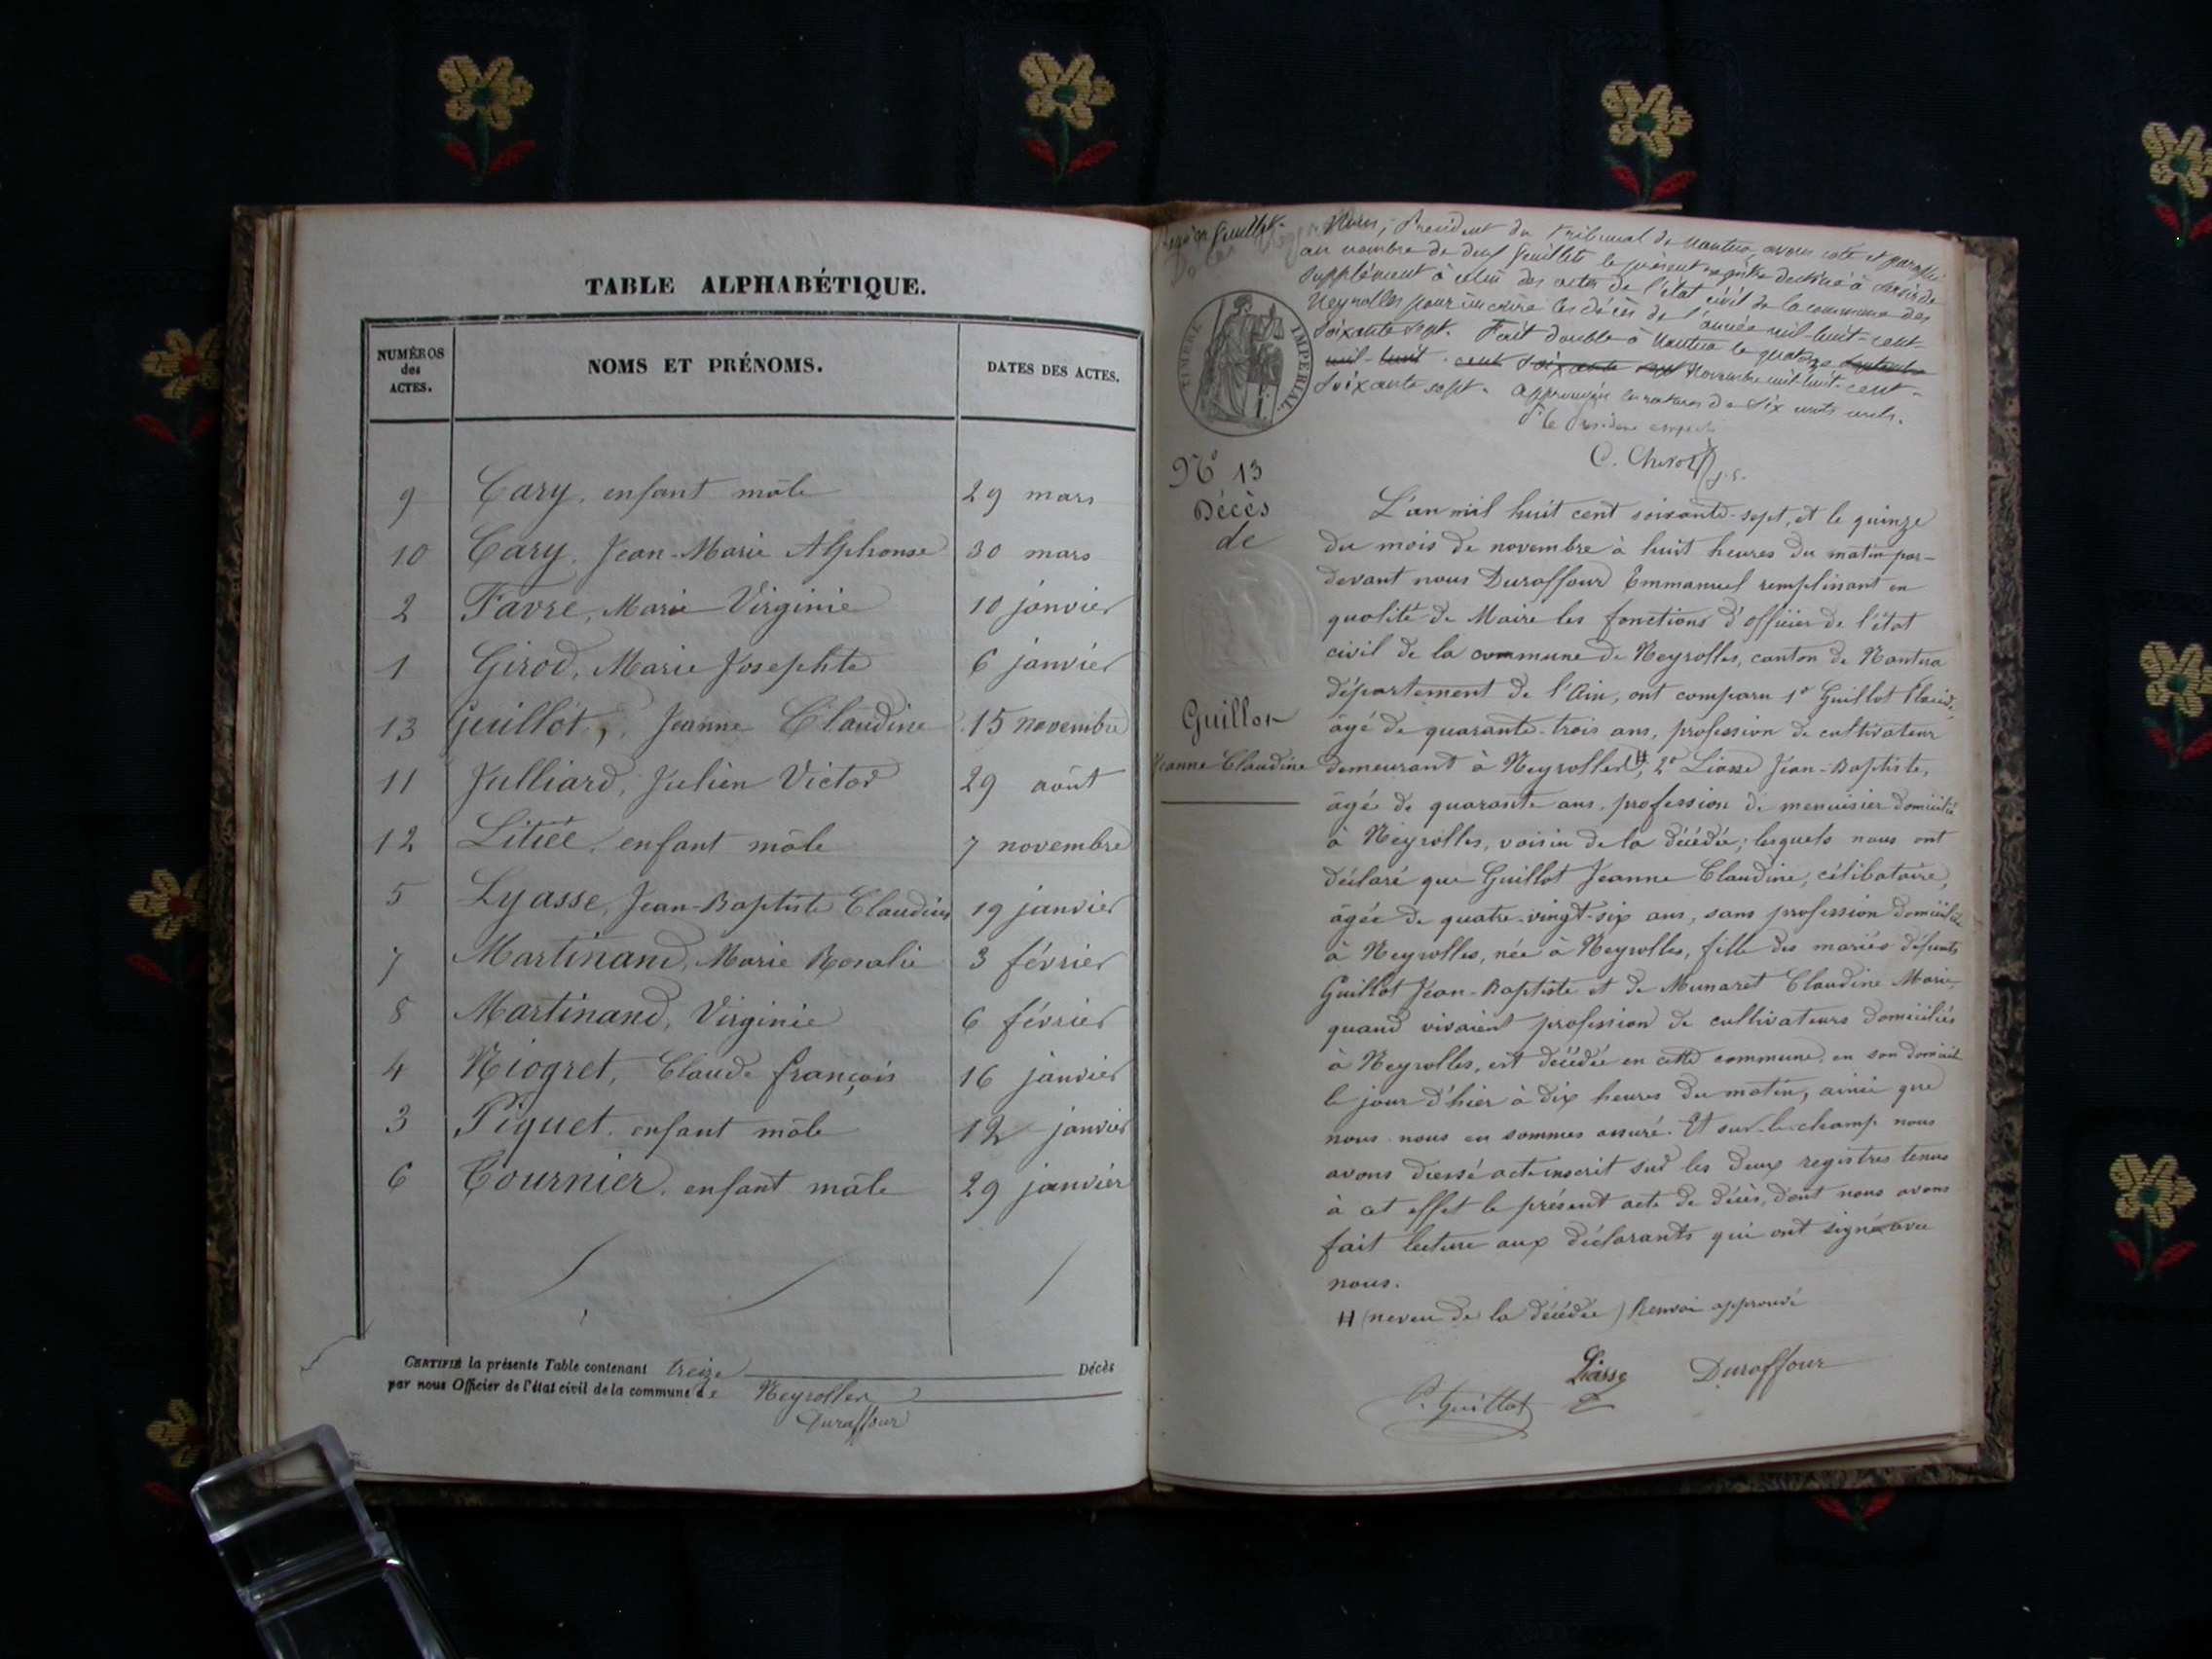 TABLE ALPHABÉTIQUE.
NUMÉROS des ACTES.
NOMS ET PRÉNOMS.
DATES DES ACTES.
9 Cary, enfant mâle 29 mars
10 Cary, Jean-Marie Alphonse 30 mars
2 Favre, Marie Virginie 10 janvier
1 Girod, Marie Josephte 6 janvier
13 Guillot, Jeanne Claudine 15 novembre
11 Julliard, Julien Victor 29 août
12 Litiée, enfant mâle 7 novembre
5 Lyasse, Jean-Baptiste Claudius 19 janvier
7 Martinand, Marie Rosalie 3 février
8 Martinand, Virginie 6 février
4 Niogret, Claude françois 16 janvier
3 Piquet, enfant mâle 12 janvier
6 Tournier, enfant mâle 29 janvier
CERTIFIÉ la présente Table contenant treize Décès
par nous Officier de l'état civil de la commune de Neyrolles
Duraffour
Nous, Président du Tribunal de Nantua, avons coté et paraphé
au nombre de deux feuillets le présent registre destiné à servir de
supplément à celui des actes de l'état civil de la commune des
Neyrolles pour inscrire les décès de l'année mil-huit-cent-
soixante sept. Fait double à Nantua le quatorze
mil-huit-cent soixante sept Novembre mil-huit-cent-
soixante sept. Approuvé la rature de six mots nuls.
Pr le Président empêché
TIMBRE IMPÉRIAL
N° 13
Décès
de
Guillot
Jeanne Claudine
L'an mil huit cent soixante-sept, et le quinze
du mois de novembre à huit heures du matin par-
devant nous Duraffour Emmanuel remplissant en
qualité de Maire les fonctions d'officier de l'état
civil de la commune de Neyrolles, canton de Nantua
département de l'Ain, ont comparu 1° Guillot
âgé de quarante-trois ans, profession de cultivateur
demeurant à Neyrolles H, 2° Liasse Jean-Baptiste,
âgé de quarante ans, profession de menuisier domicilié
à Neyrolles, voisin de la décédée; lesquels nous ont
déclaré que Guillot Jeanne Claudine, célibataire,
âgée de quatre-vingt-six ans, sans profession domiciliée
à Neyrolles, née à Neyrolles, fille des mariés défunts
Guillot Jean-Baptiste et de Munaret Claudine Marie,
quand vivaient profession de cultivateurs domiciliés
à Neyrolles, est décédée en cette commune, en son domicile
le jour d'hier à dix heures du matin, ainsi que
nous nous en sommes assuré. Et sur-le-champ nous
avons dressé acte inscrit sur les deux registres tenus
à cet effet le présent acte de décès, dont nous avons
fait lecture aux déclarants qui ont signé avec
nous.
H (neveu de la décédée) Renvoi approuvé
Liasse Duraffour
P. Guillot